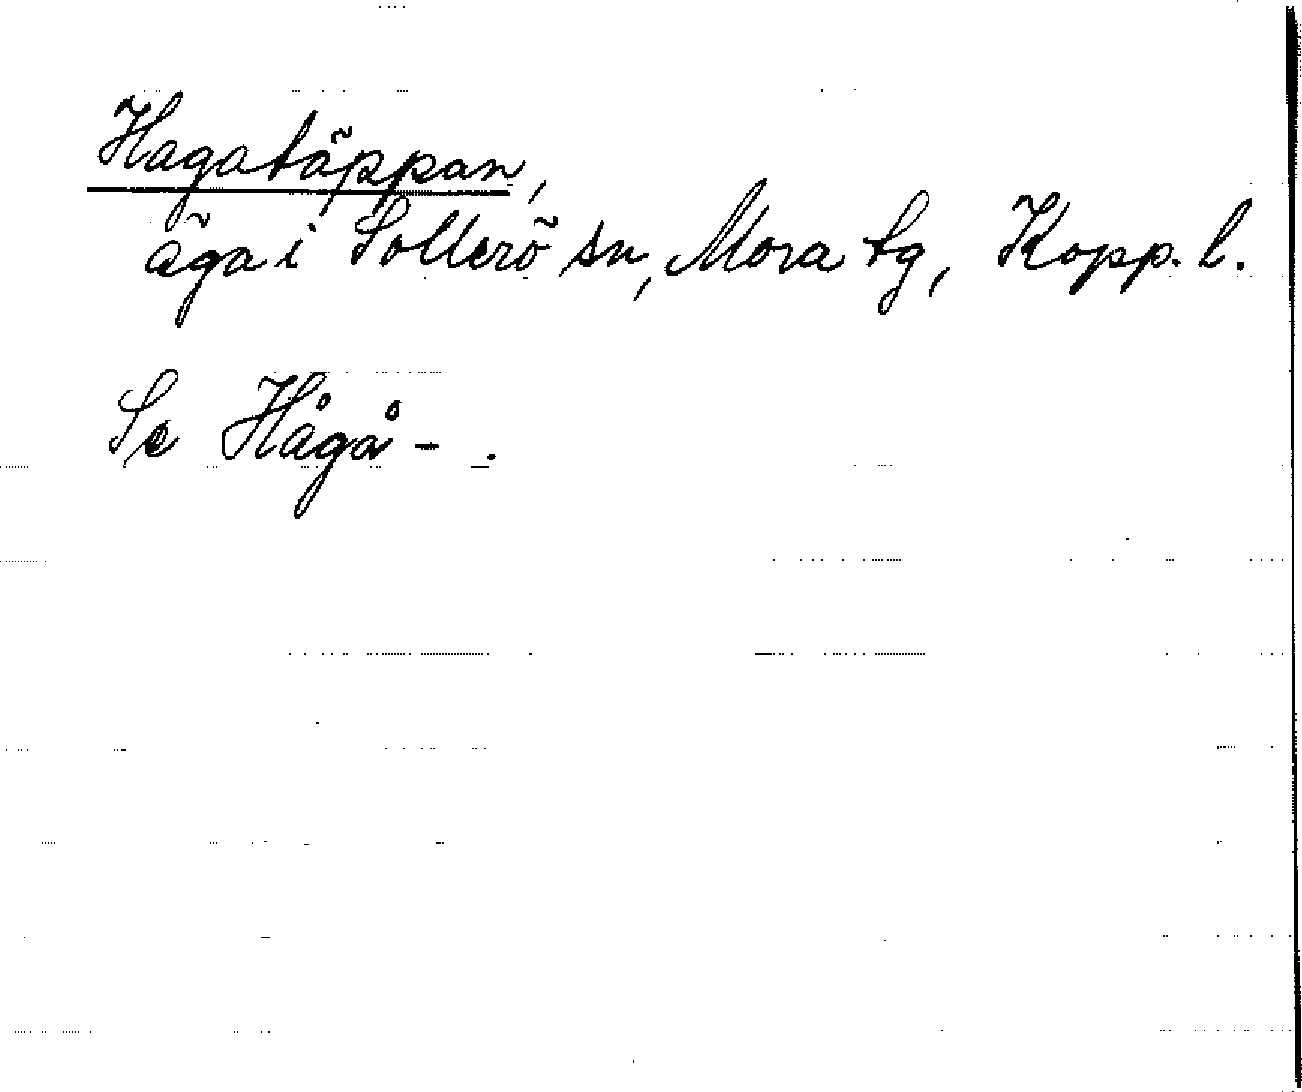 Hagatäppan,
äga i Sollerö sn, Mora tg, Kopp. l.
Se Hågå - .